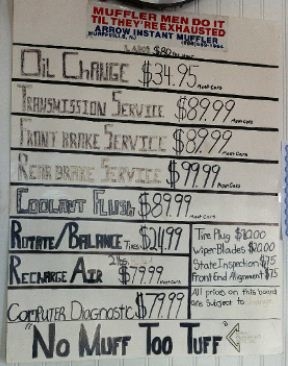 MUFFLER MEN DO IT
TIL THEY'RE EXHAUSTED
ARROW INSTANT MUFFLER
LABOR $80
OIL CHANGE $34.95 Most Cars
TRANSMISSION SERVICE $89.99 Most Cars
FRONT BRAKE SERVICE $89.99 Most Cars
REAR BRAKE SERVICE $99.99 Most Cars
COOLANT FLUSH $89.99 Most Cars
ROTATE/BALANCE Tires $24.99
RECHARGE AIR $79.99 Most Cars
COMPUTER DIAGNOSTIC $79.99
Tire Plug
Wiper Blades $20.00
State Inspection $75
Front End Alignment $75
All prices on this board
are Subject to
"NO MUFF TOO TUFF"